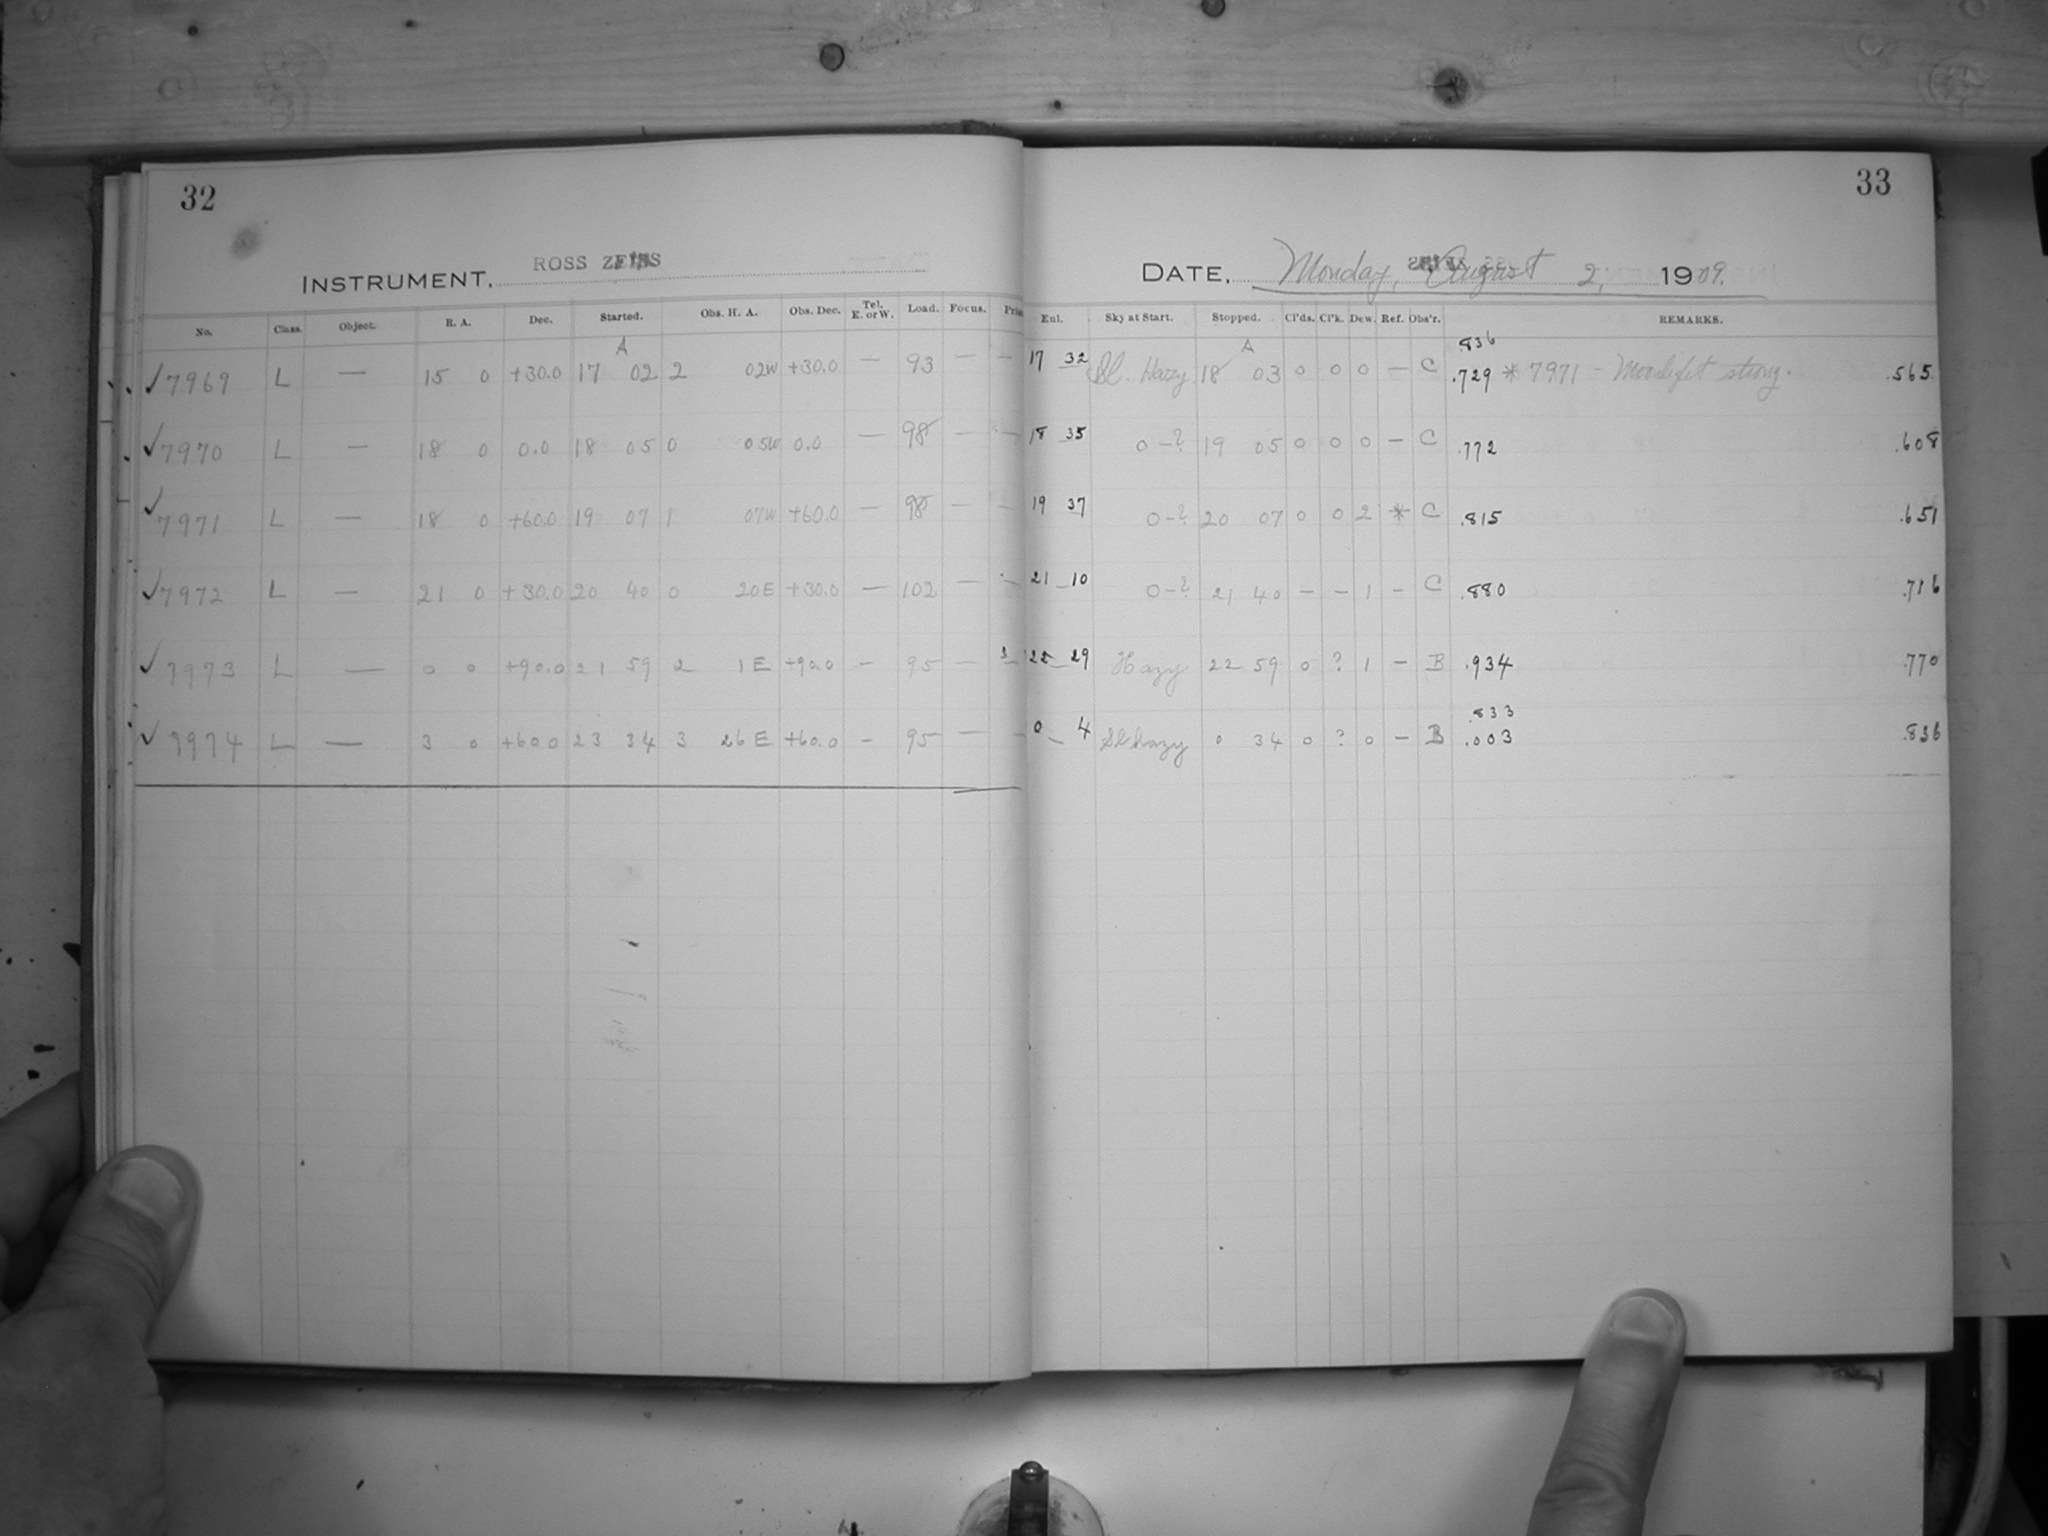 32
INSTRUMENT, ROSS ZEISS
No. Class. Object. R. A. Dec. Started. Obs. H. A. Obs. Dec. Tel. E. or W. Load. Focus.
A
✓7969 L — 15 0 +30.0 17 02 2 02W +30.0 — 93 — —
✓7970 L — 18 0 0.0 18 05 0 05W 0.0 — 98 — —
✓7971 L — 18 0 +60.0 19 07 1 07W +60.0 — 98 — —
✓7972 L — 21 0 +30.0 20 40 0 20E +30.0 — 102 — —
✓7973 L — 0 0 +90.0 21 59 2 1E +90.0 — 95 — —
✓7974 L — 3 0 +60.0 23 34 3 26E +60.0 — 95 — —
33
DATE, Monday, August 2, 1909.
Enl. Sky at Start. Stopped. Cl'ds. Cl'k. Dew. Ref. Obs'r. REMARKS.
A .836
17 32 Sl. Hazy 18 03 0 0 0 — C .729 * 7971 - Moonlight strong. .565
18 35 0-? 19 05 0 0 0 — C .772 .608
19 37 0-? 20 07 0 0 2 * C .815 .651
21 10 0-? 21 40 — — 1 - C .880 .716
22 29 Hazy 22 59 0 ? 1 — B .934 .770
.833
0 4 Sl hazy 0 34 0 ? 0 — B .003 .836